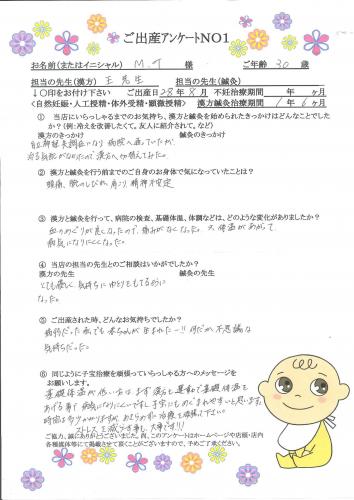 ご出産アンケートNO1
お名前(またはイニシャル) M.T 様 ご年齢 30 歳
担当の先生(漢方) 王先生 担当の先生(鍼灸)
↓〇印をお付け下さい ご出産日 28年 8月 不妊治療期間 年 ヶ月
<自然妊娠・人工授精・体外受精・顕微授精> 漢方鍼灸治療期間 1年 6ヶ月
① 当店にいらっしゃるまでのお気持ち、漢方と鍼灸を始められたきっかけはどんなことでした
か?(例:冷えを改善したく。友人に紹介されて。など)
漢方のきっかけ 鍼灸のきっかけ
自律神経失調症になり病院へ通っていたが、
治る気配がなかったので漢方へ切替えてみた。
② 漢方と鍼灸を行う前までのご自身のお身体で気になっていたことは?
頭痛、腕のしびれ、肩こり、精神不安定
③ 漢方と鍼灸を行って、病院の検査、基礎体温、体調などは、どのような変化がありましたか?
血のめぐりが良くなったので、痛みがなくなった。又、体温があがって
病気になりにくくなった。
④ 当店の担当の先生とのご相談はいかがでしたか?
漢方の先生 鍼灸の先生
とても優しく、気持ちにゆとりをもてるように
なった。
⑤ ご出産された時、どんなお気持ちでしたか?
病弱だった私でも赤ちゃんが生まれたー!!何だか不思議な
気持ちだった。
⑥ 同じように子宝治療を頑張っていらっしゃる方へのメッセージを
お願いします。
基礎体温が低い方はまず漢方と運動で基礎体温を
あげる事で病気になりにくいですし、子宝にもめぐまれやすいと思います。
時間は多少かかりますが、あきらめずに治療を頑張って下さい。
ストレスを減らす事も、大事です!!
ご協力、誠にありがとうございました。尚、このアンケートはホームページや店頭・店内
各種媒体等にて掲載させて頂くことがございますので、予めご了承ください。